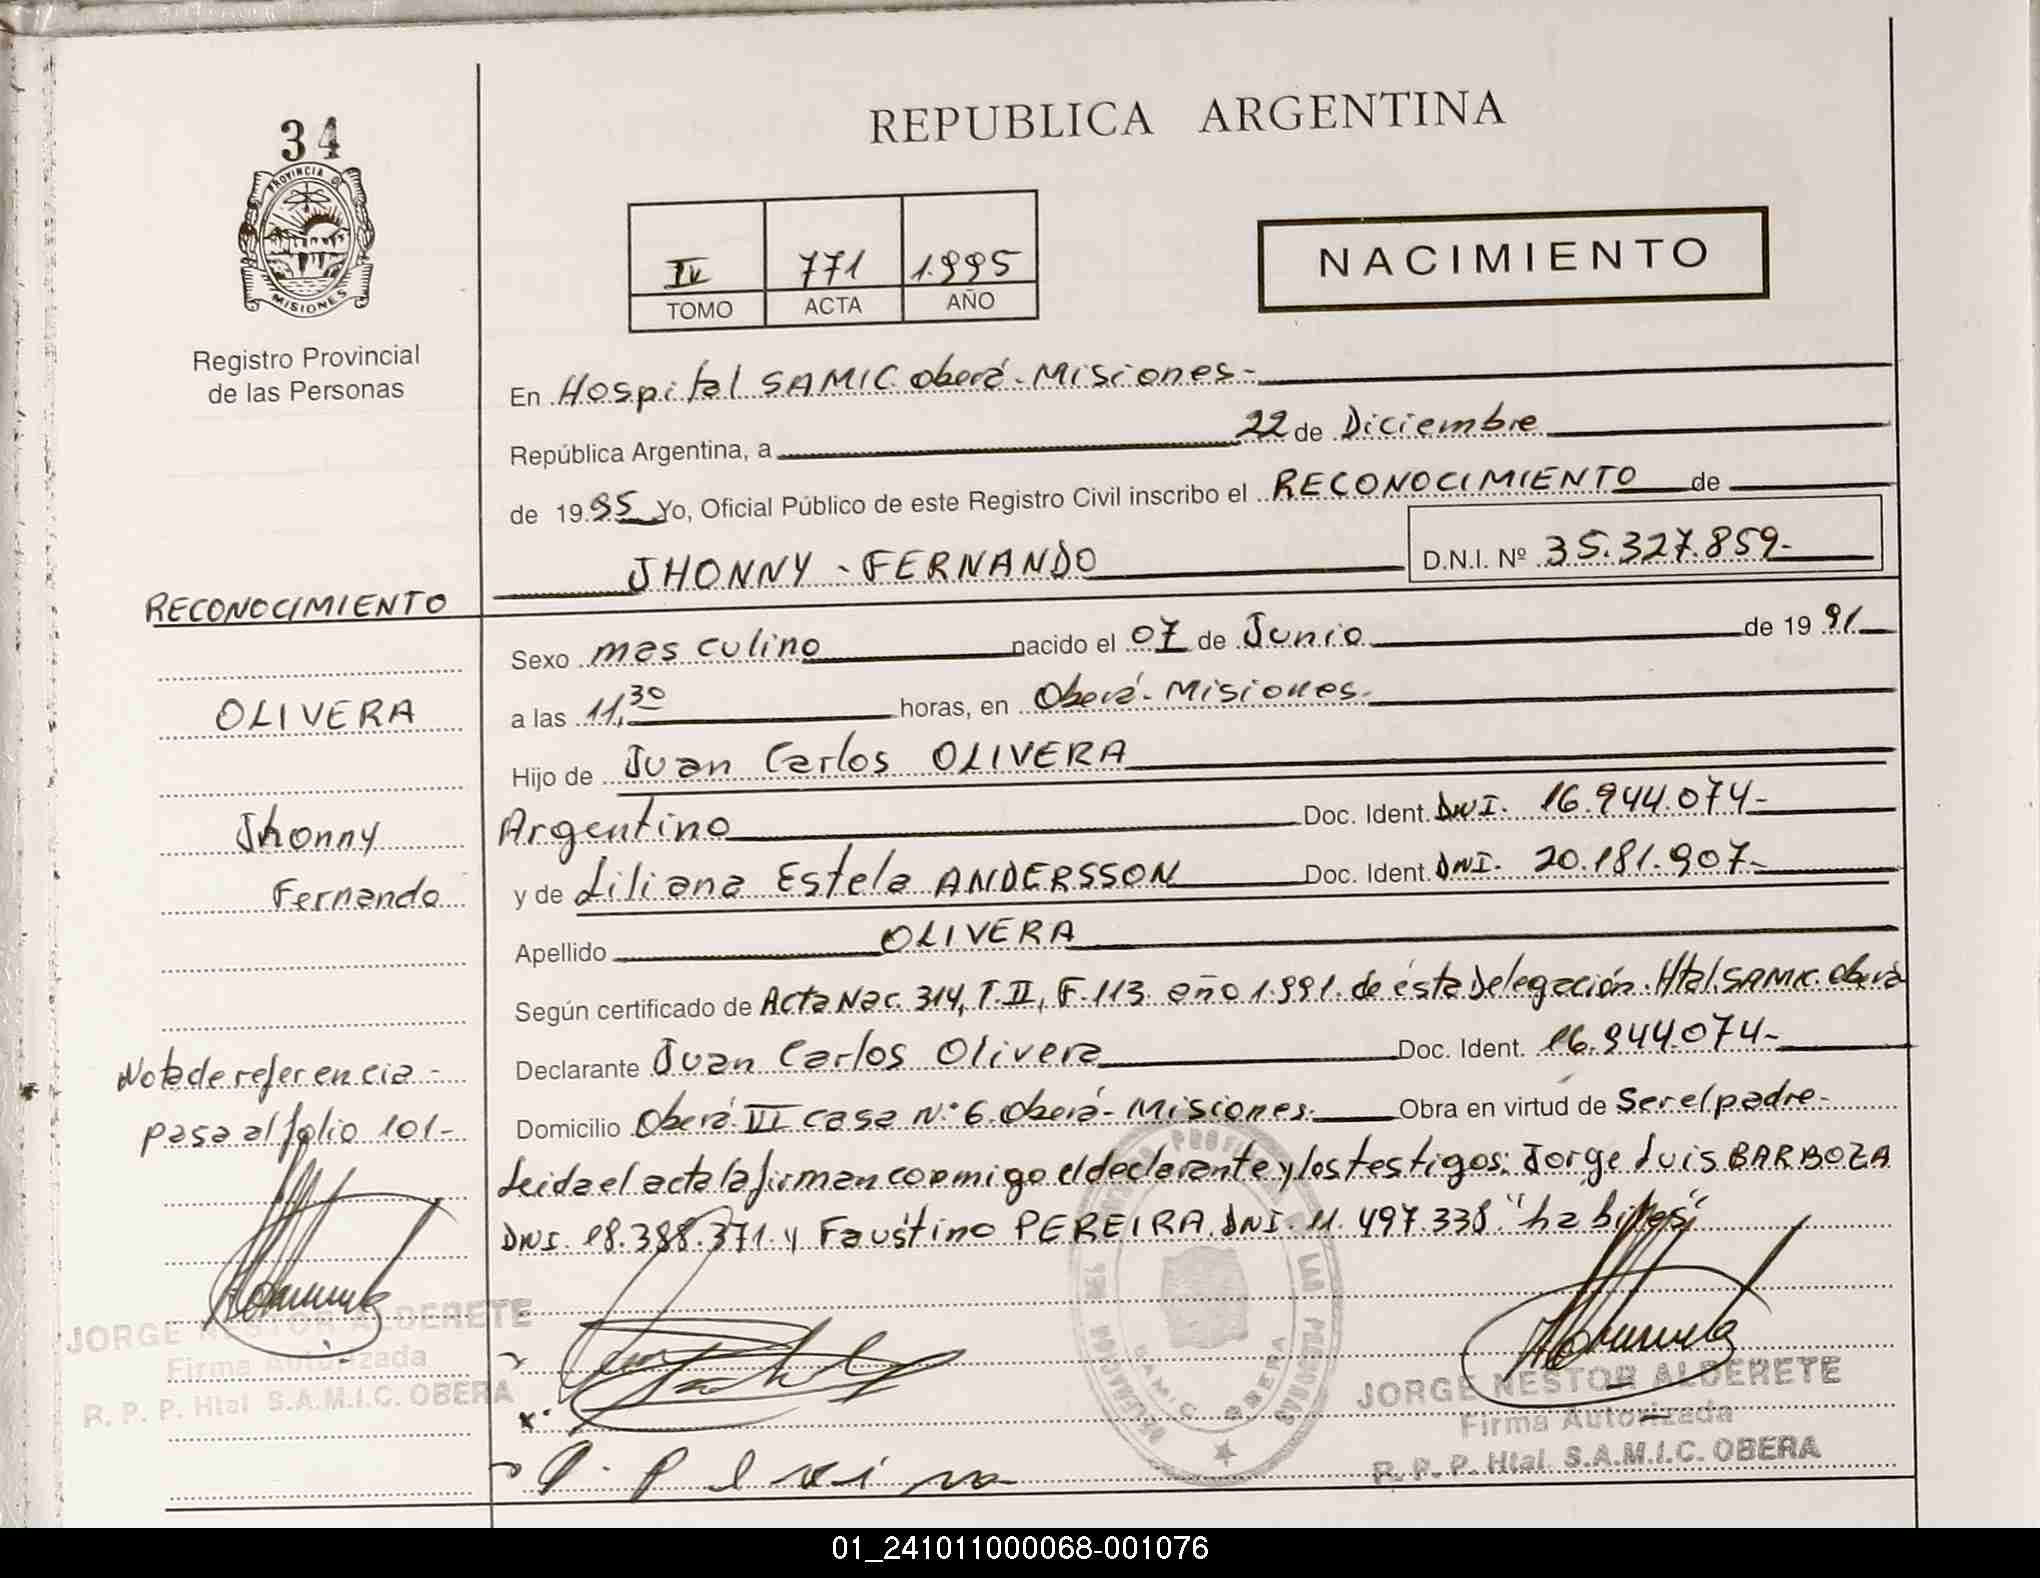 34
PROVINCIA DE
MISIONES
Registro Provincial
de las Personas
REPUBLICA ARGENTINA
IV 771 1.995
TOMO ACTA AÑO
NACIMIENTO
En Hospital SAMIC. Oberá - Misiones -
República Argentina, a 22 de Diciembre
de 1995 Yo, Oficial Público de este Registro Civil inscribo el RECONOCIMIENTO de
JHONNY - FERNANDO D.N.I. Nº 35.327.859-
RECONOCIMIENTO
Sexo masculino nacido el 07 de Junio de 1991
OLIVERA
a las 11,30 horas, en Oberá - Misiones.
Hijo de Juan Carlos OLIVERA
Jhonny
Argentino Doc. Ident. DNI. 16.944.074-
Fernando
y de Liliana Estela ANDERSSON Doc. Ident. DNI. 20.181.907-
Apellido OLIVERA
Según certificado de Acta Nac. 314, T. II, F. 113 año 1.991. de ésta Delegación. Htal. SAMIC. Oberá
Nota de referencia -
Declarante Juan Carlos Olivera Doc. Ident. 16.944.074-
pasa al folio 101-
Domicilio Oberá VI casa Nº 6. Oberá - Misiones. Obra en virtud de Ser el padre -
Leida el acta la firman conmigo el declarante y los testigos: Jorge Luis BARBOZA
DNI. 18.388.371. y Faustino PEREIRA. DNI. 11.497.338. "habiles"
JORGE NESTOR ALDERETE
Firma Autorizada
R. P. P. Htal S.A.M.I.C. OBERA
DE LAS PERSONAS
DELEGACION
S.A.M.I.C. OBERA
JORGE NESTOR ALDERETE
Firma Autorizada
R. P. P. Htal. S.A.M.I.C. OBERA
01_241011000068-001076